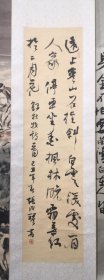 遠上寒山石徑斜白雲深處有
人家停車坐愛楓林晚霜葉紅
於二月花 杜牧詩